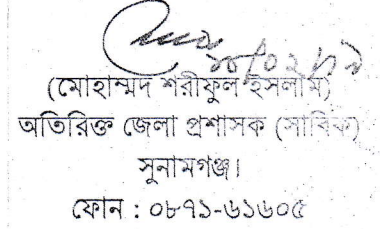 (মোহাম্মদ শরীফুল ইসলাম)
অতিরিক্ত জেলা প্রশাসক (সার্বিক)
সুনামগঞ্জ।
ফোন : ০৮৭১-৬১৬০৫